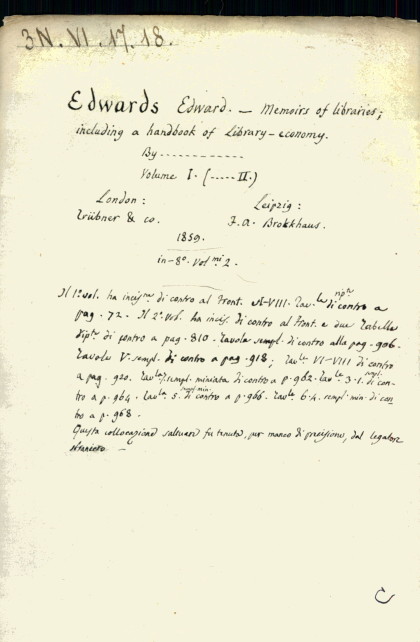 3N. VI. 17. 18.
Edwards Edward. — Memoirs of libraries;
including a handbook of Library-economy.
By ------------
Volume I. (-----II.)
London: Leipzig:
Trübner & co. F. A. Brokhaus.
1859.
in-8º. Vol mi 2.
Il 1º vol. ha incisne di contro al Front. A-VIII. Tavla ripta di contro a
pag. 72. Il 2º Vol. ha incis. di contro al Front. e due Tabelle
ripte di contro a pag. 810. Tavola sempl. di contro alla pag. 906.
Tavola V. sempl. di contro a pag. 918; Tavle VI-VIII di contro
a pag. 920. Tavla 7. sempl. miniata di contro a p. 962. Tavle 3.1. sempl. di con-
tro a p. 964. Tavla 5. sempl. min. di contro a p. 966. Tavle 6.4. sempl. min. di con
tro a p. 968.
Questa collocazione saltuaria fu tenuta, per manco di precisione, dal legatore
straniero. —